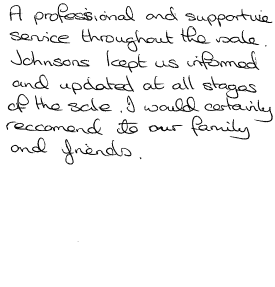 A professional and supportive
service throughout the sale.
Johnsons kept us informed
and updated at all stages
of the sale. I would certainly
reccomend to our family
and friends.